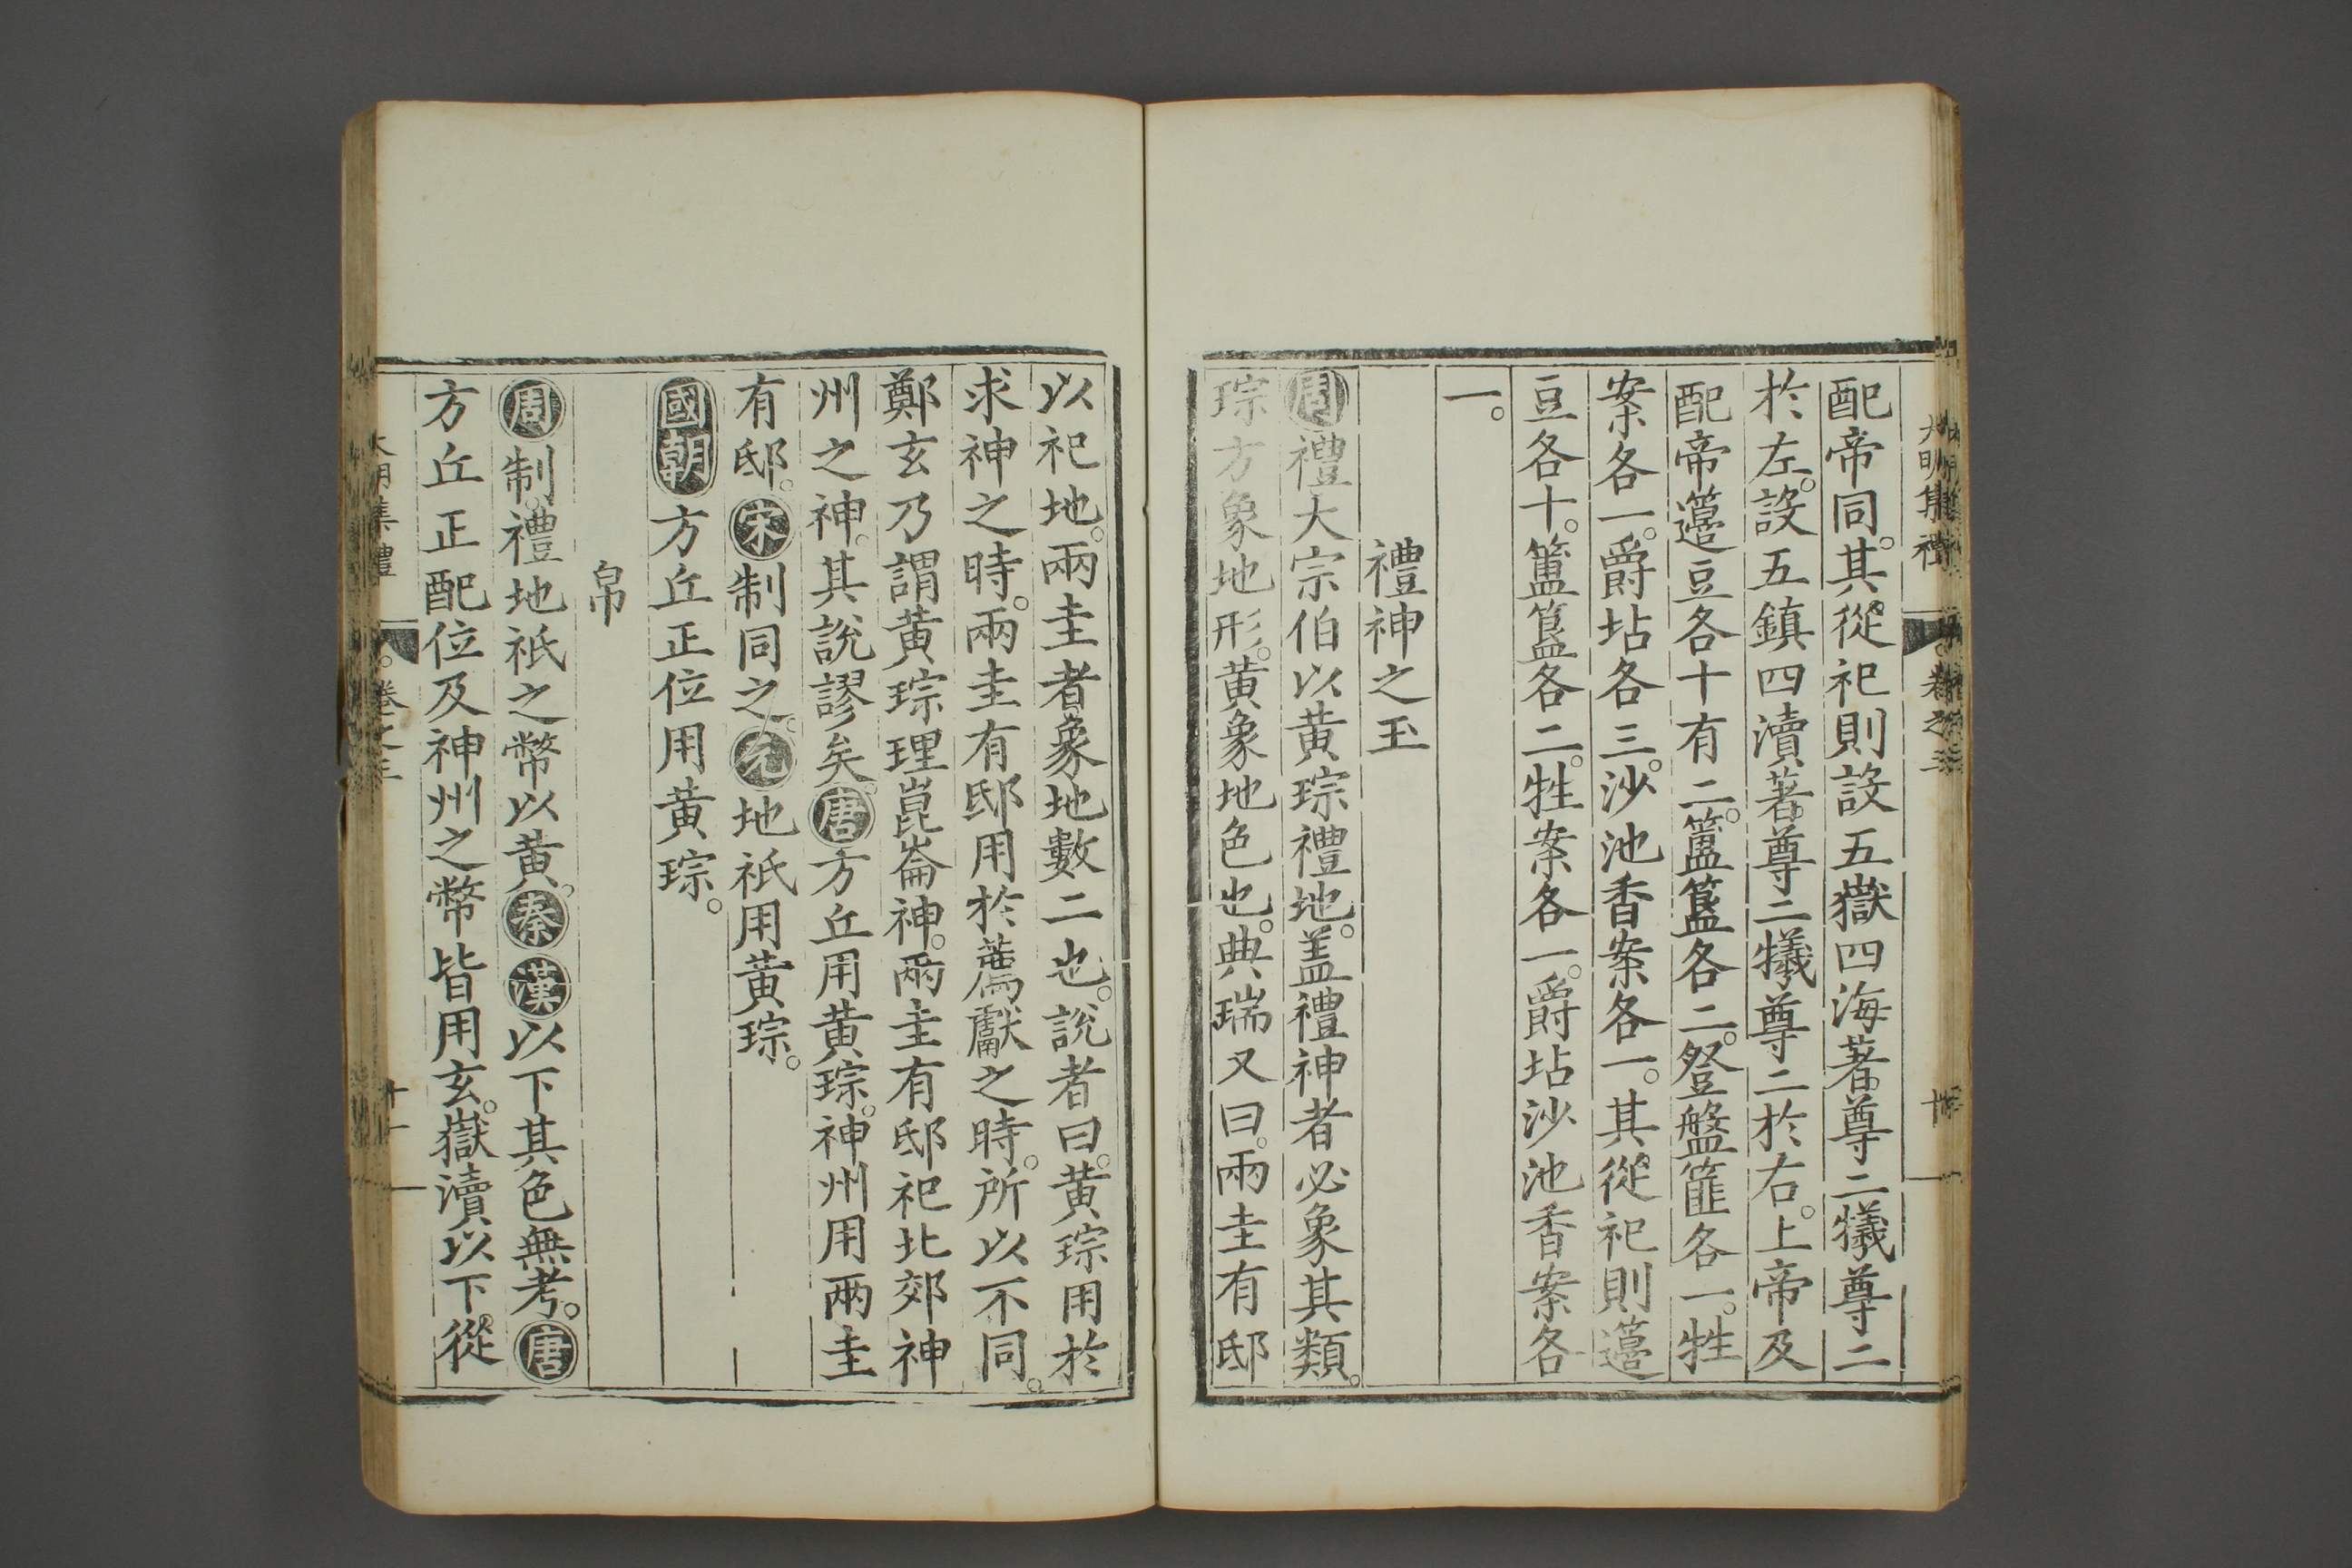 配帝同。其從祀則設五嶽四海著尊二犧尊二
於左。設五鎮四瀆著尊二犧尊二於右。上帝及
配帝籩豆各十有二。簠簋各二。登盤篚各一。牲
案各一。爵坫各三。沙池香案各一。其從祀則籩
豆各十。簠簋各二。牲案各一。爵坫沙池香案各
一。
禮神之玉
周禮大宗伯以黃琮禮地。盖禮神者必象其類。
琮方象地形。黃象地色也。典瑞又曰。兩圭有邸
以祀地。兩圭者象地數二也。說者曰。黃琮用於
求神之時。兩圭有邸用於薦獻之時。所以不同。
鄭玄乃謂黃琮理崑崙神。兩圭有邸祀北郊神
州之神。其說謬矣。唐方丘用黃琮。神州用兩圭
有邸。宋制同之。元地祇用黃琮。
國朝方丘正位用黃琮。
帛
周制。禮地祇之幣以黃。秦漢以下其色無考。唐
方丘正配位及神州之幣皆用玄。嶽瀆以下。從
大明集禮 卷之三 十一